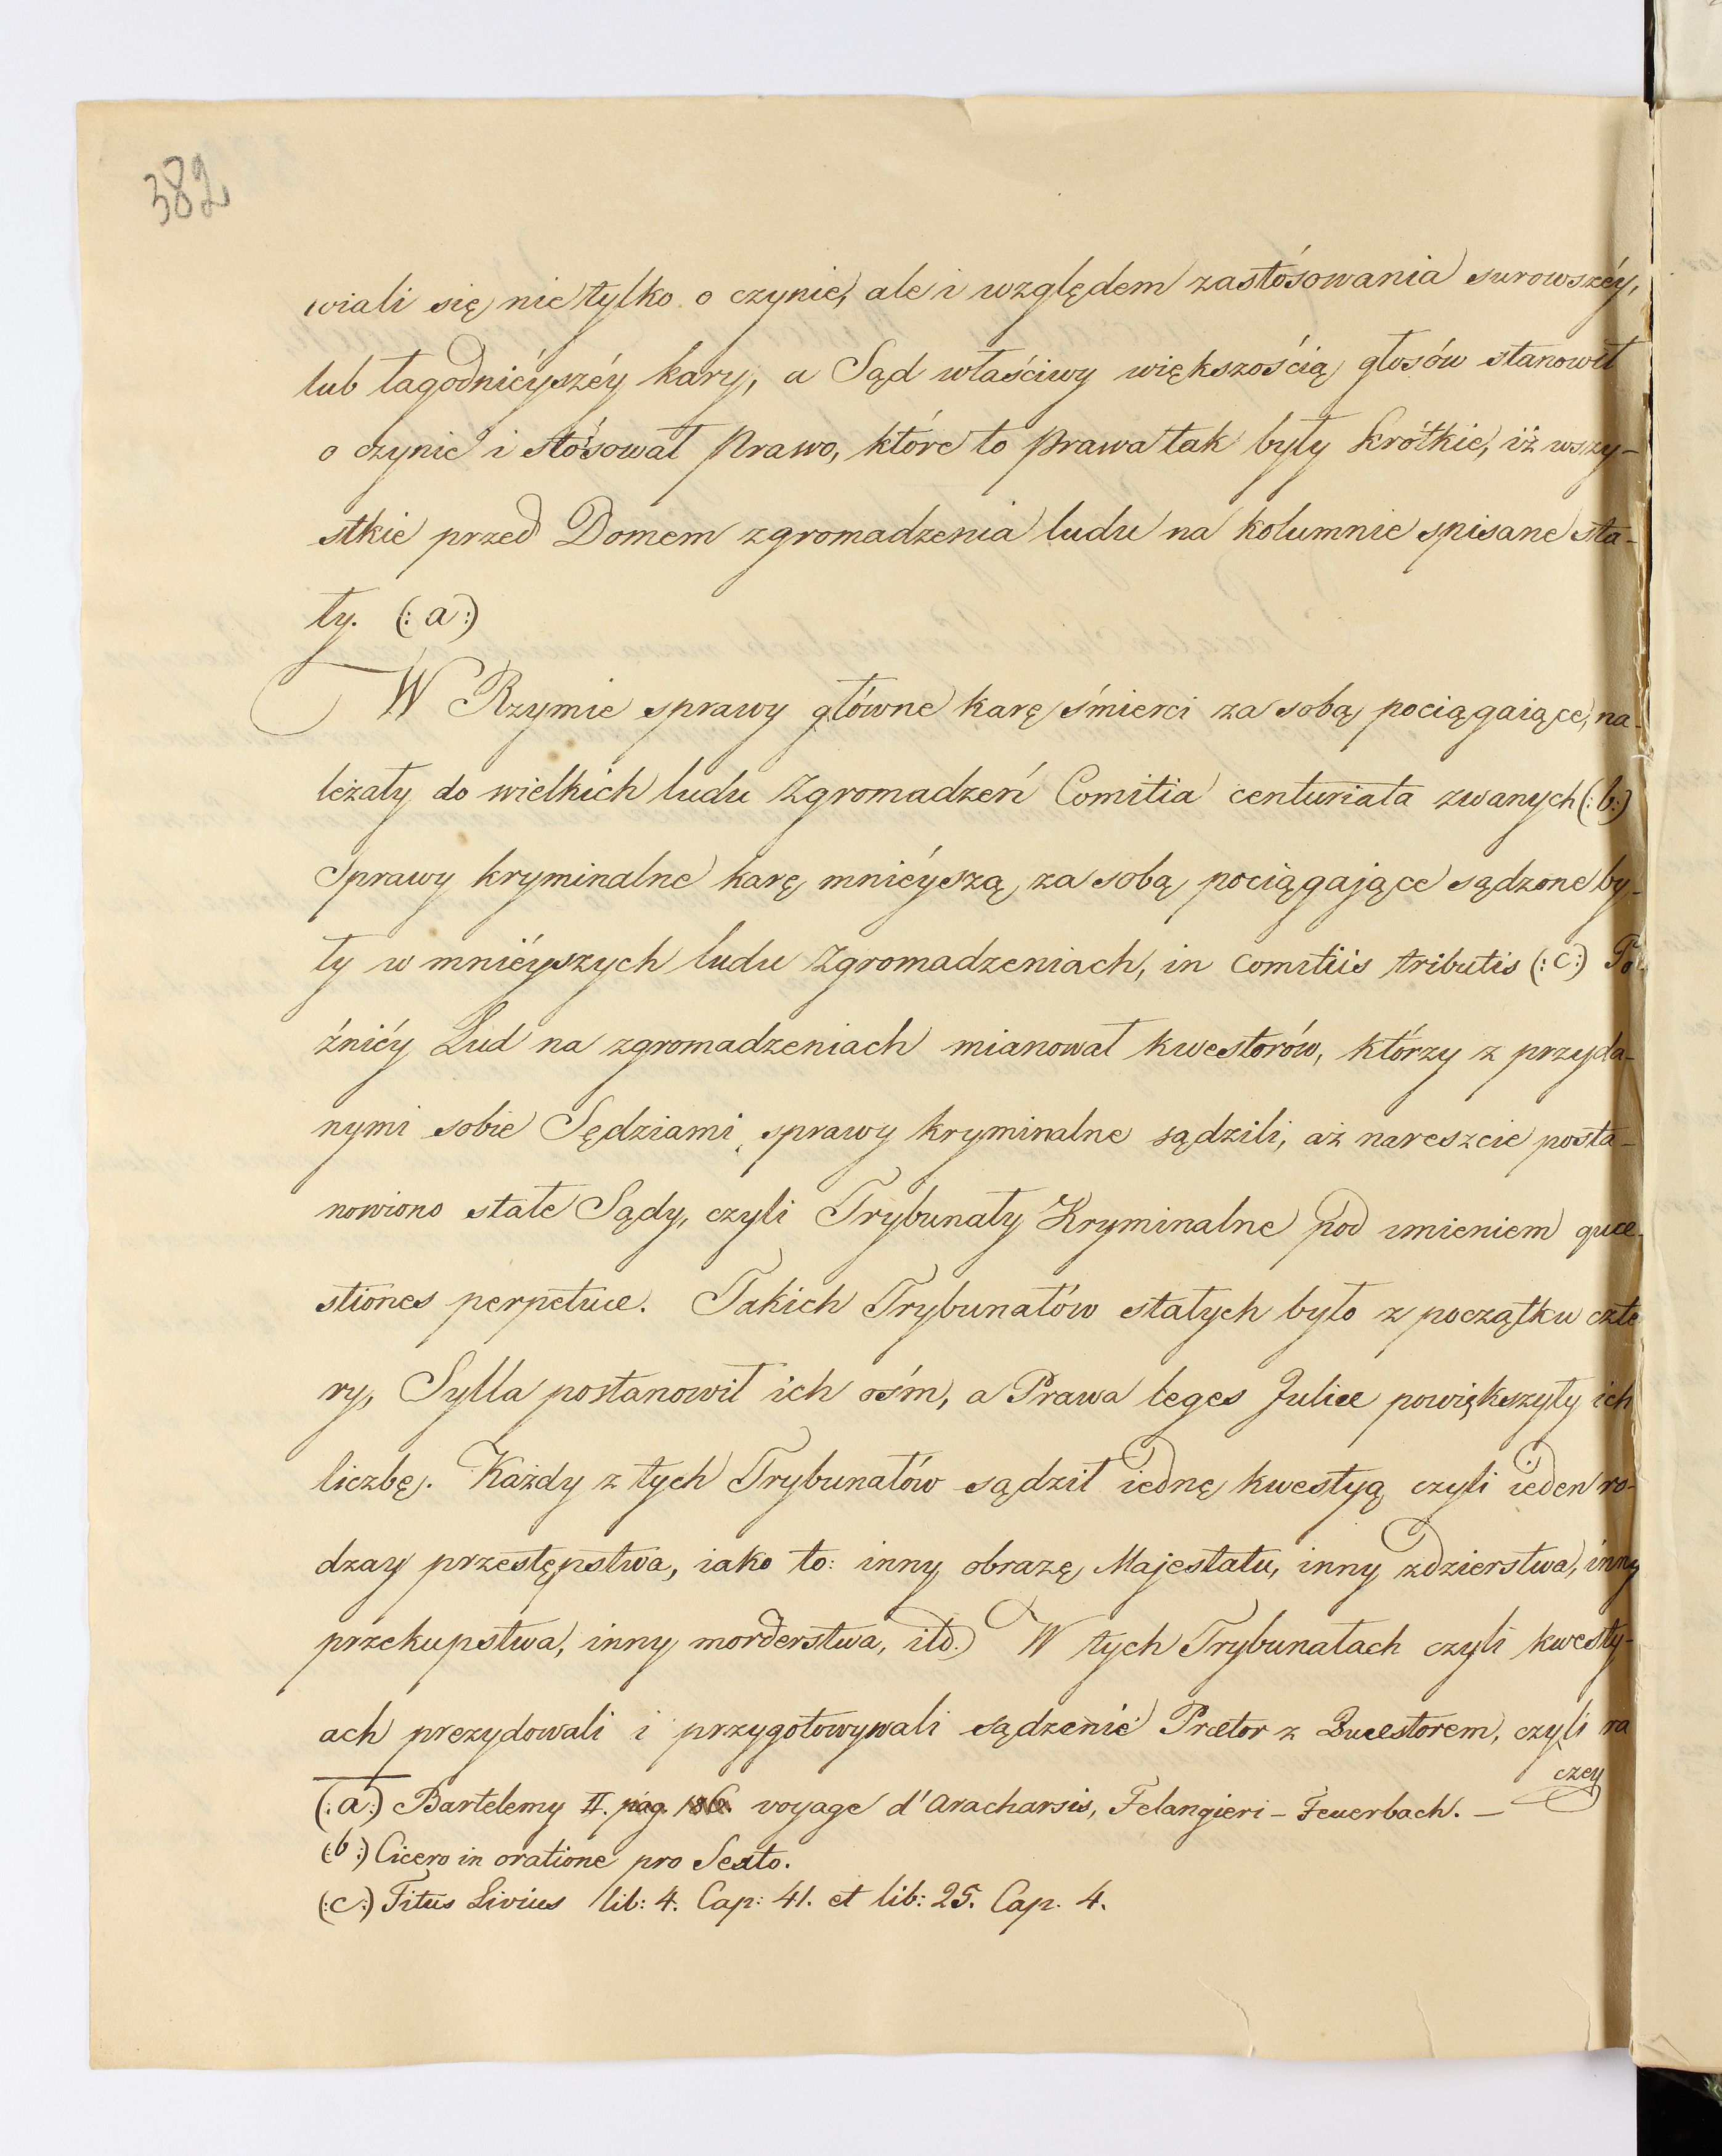 382
wiali się nie tylko o czynie, ale i względem zastósowania surowszéy,
lub łagodniéyszéy kary, a Sąd właściwy większością głosów stanowił
o czynie i stósował Prawo, które to Prawa tak były krótkie, iż wszy-
stkie przed Domem zgromadzenia ludu na kolumnie spisane sta-
ły. (: a :)
W Rzymie sprawy główne karę śmierci za sobą pociągaiące, na-
leżały do wielkich ludu Zgromadzeń Comitia centuriata zwanych (: b :)
Sprawy kryminalne karę mniéyszą za sobą pociągające sądzone by-
ły w mniéyszych ludu Zgromadzeniach, in Comitiis tributis (: c :) Pó-
źniéy Lud na zgromadzeniach mianował kwestorów, którzy z przyda-
nymi sobie Sędziami sprawy kryminalne sądzili, aż nareszcie posta-
nowiono stałe Sądy, czyli Trybunały Kryminalne pod imieniem quæ-
stiones perpetuæ. Takich Trybunałów stałych było z początku czte
ry, Sylla postanowił ich ośm, a Prawa leges Juliæ powiększyły ich
liczbę. Każdy z tych Trybunałów sądził iednę kwestyą czyli ieden ro-
dzay przestępstwa, iako to: inny obrazę Majestatu, inny zdzierstwa, inny
przekupstwa, inny morderstwa, itd. W tych Trybunałach czyli kwesty-
ach prezydowali i przygotowywali sądzenie Prætor z Quæstorem, czyli ra
czey
(: a :) Bartelemy II. pag. voyage d'Anacharsis, Felangieri – Feuerbach. –
(: b :) Cicero in oratione pro Sexto.
(: c :) Titus Livius lib: 4. Cap: 41. et lib: 25. Cap. 4.